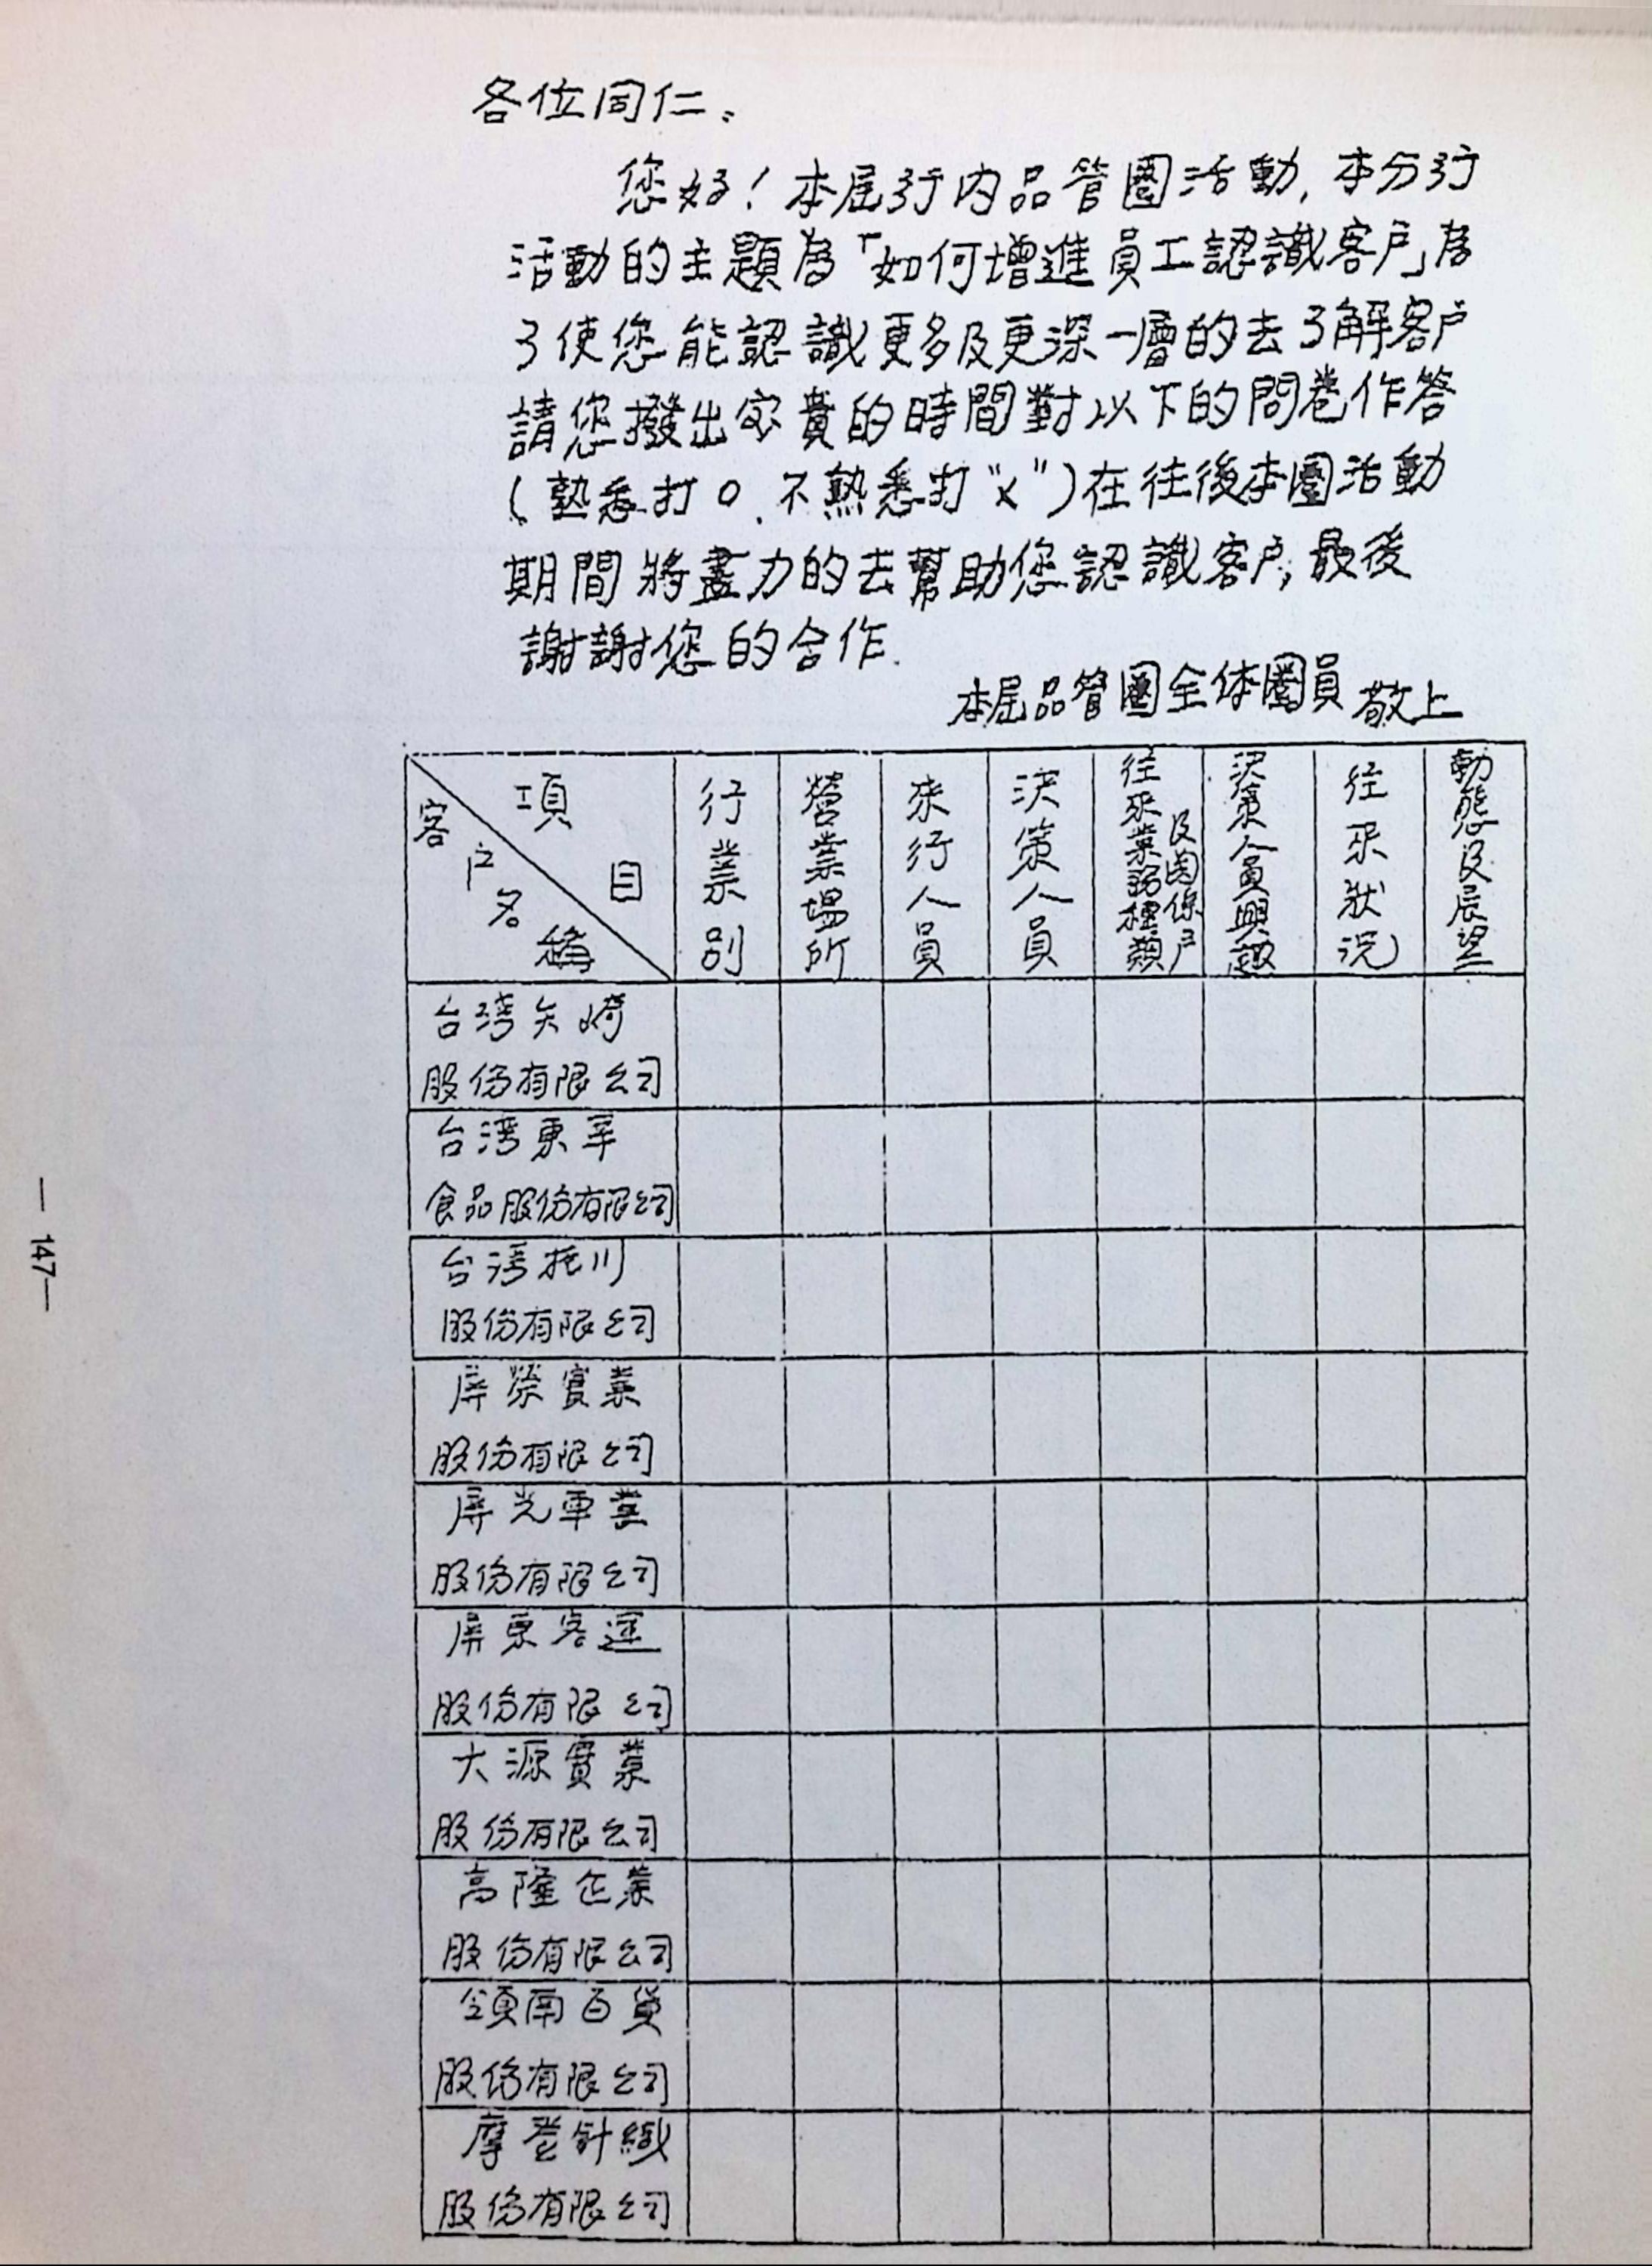 各位同仁:
您好!本屆行內品管圈活動,本分行
活動的主題為「如何增進員工認識客戶」為
了使您能認識更多及更深一層的去了解客戶
請您撥出宝貴的時間對以下的問卷作答
(熟悉打○,不熟悉打"×")在往後本圈活動
期間將盡力的去幫助您認識客戶,最後
謝謝您的合作.
本屆品管圈全体圈員 敬上
項目
客戶名稱
行業別
營業場所
來行人員
決策人員
往來業務種類及関係戶
決策人員興趣
往來狀況
動態及展望
台湾矢崎
股份有限公司
台湾東
食品股份有限公司
台湾
股份有限公司
屏榮實業
股份有限公司
屏光車業
股份有限公司
屏東客運
股份有限公司
大源實業
股份有限公司
高隆企業
股份有限公司
嶺南百貨
股份有限公司
摩登針織
股份有限公司
— 147—